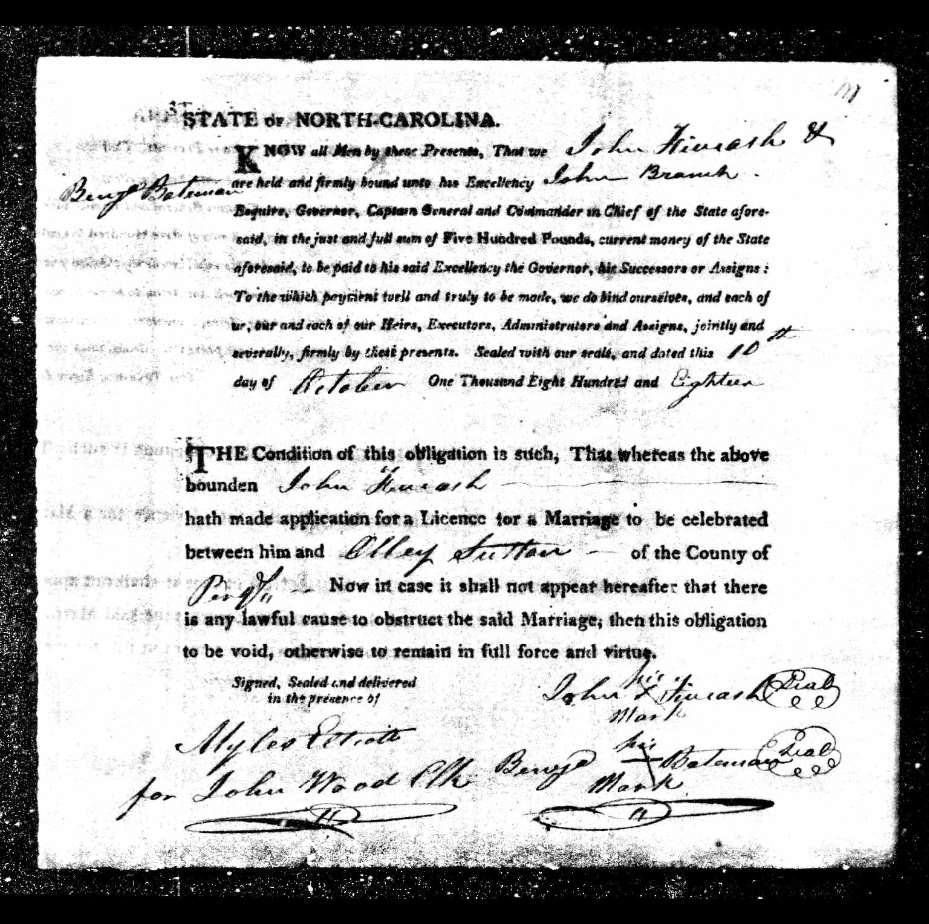 STATE OF NORTH-CAROLINA.
KNOW all Men by these Presents, That we John &
Benj^a Bateman
are held and firmly bound unto his Excellency John Branch.
Esquire, Governor, Captain General and Commander in Chief of the State afore-
said, in the just and full sum of Five Hundred Pounds, current money of the State
aforesaid, to be paid to his said Excellency the Governor, his Successors or Assigns:
To the which payment well and truly to be made, we do bind ourselves, and each of
us, our and each of our Heirs, Executors, Administrators and Assigns, jointly and
severally, firmly by these presents. Sealed with our seals, and dated this 10th
day of October One Thousand Eight Hundred and Eighteen
THE Condition of this obligation is such, That whereas the above
bounden John
hath made application for a Licence for a Marriage to be celebrated
between him and Olley Sutton of the County of
Now in case it shall not appear hereafter that there
is any lawful cause to obstruct the said Marriage, then this obligation
to be void, otherwise to remain in full force and virtue.
Signed, Sealed and delivered
in the presence of
his
John X Seal
Mark
Myles Elliott
for John Wood Clk
his
Benj^a X Bateman Seal
Mark